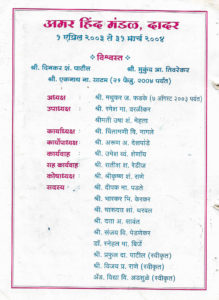 अमर हिंद मंडळ, दादर
१ एप्रिल २००३ ते ३१ मार्च २००४
विश्वस्त
श्री. दिनकर शं. पाटील श्री. मुकुंद आ. तिवरेकर
श्री. एकनाथ मा. साटम (२९ फेब्रु. २००४ पर्यंत)
अध्यक्ष श्री. मधुकर ज. फडके (७ ऑगस्ट २००३ पर्यंत)
उपाध्यक्ष श्री. रमेश गा. वरळीकर
श्रीमती उषा शं. मेहता
कार्याध्यक्ष श्री. चिंतामणी वि. नागले
कार्योपाध्यक्ष श्री. अरूण अ. देशपांडे
कार्यवाह श्री. उमेश ध. शेणॉय
सह कार्यवाह श्री. सतीश श. रेडीज
कोषाध्यक्ष श्री. श्रीकृष्ण शां.
सदस्य श्री. दीपक मा. पडते
श्री. भास्कर पि. केरकर
श्री. मारूती शां. धरवल
श्री. दत्ता अ. सावंत
श्री. संजय वि. पेडणेकर
डॉ. स्नेहल पा. बिर्जे
श्री. प्रफुल्ल दा. पाटील (स्वीकृत)
श्री. विजय प्र. राणे (स्वीकृत)
ॲड. विद्या वि. अडसुळे (स्वीकृत)